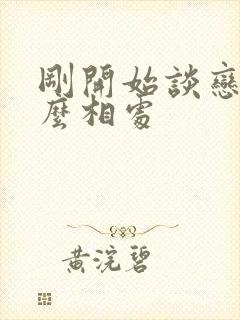 剛開始談戀
麼相處
黃浣碧